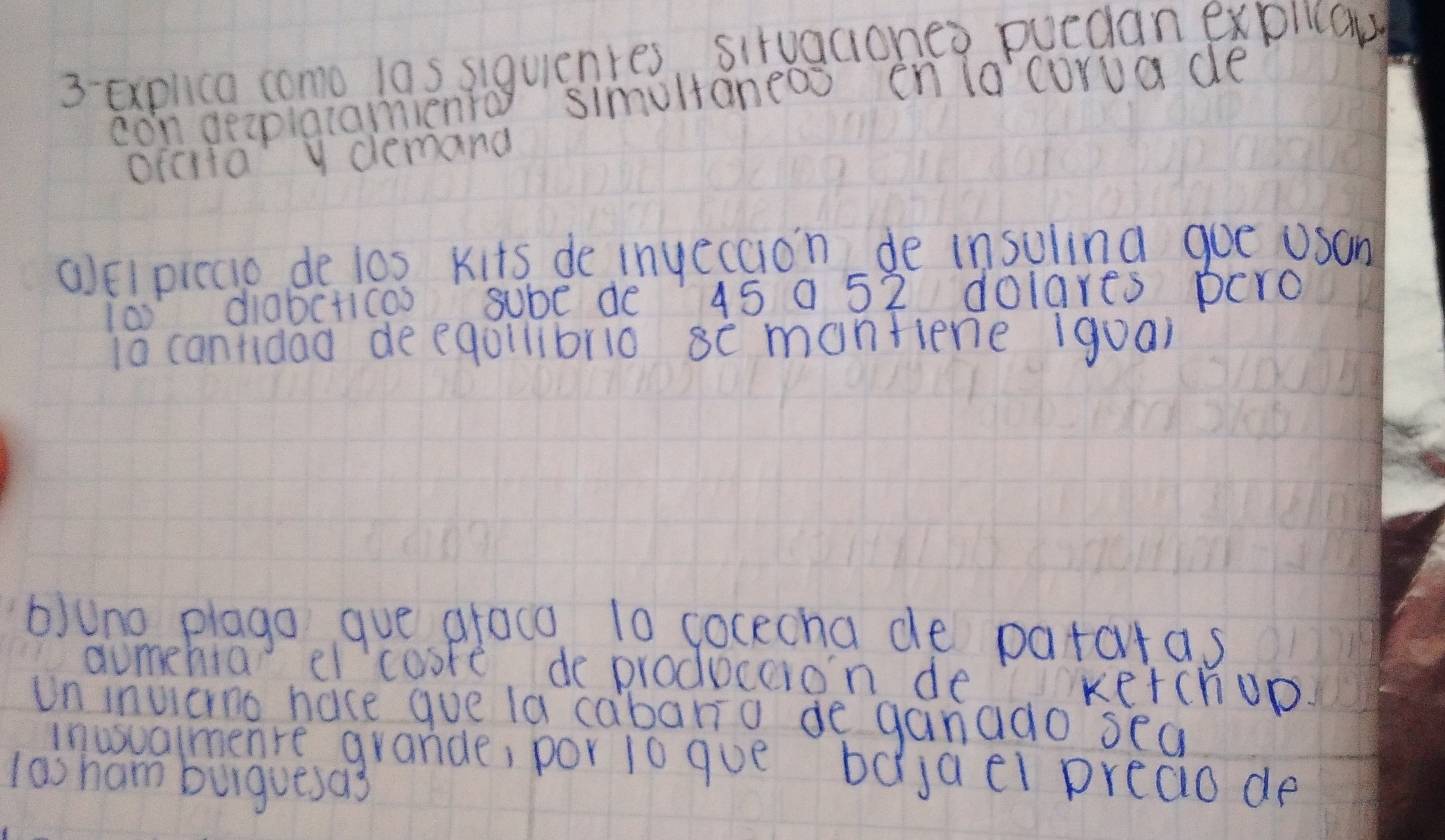 3-Explica como las siguientes situaciones puedan explicar
con dezplazamientos simultaneas en la curva de
oferta y demand
a) El precio de los Kits de inyección de insulina que usan
los diabeticos sube de 45 a 52 dolares pero
la cantidad de equilibrio se mantiene igual
b) Una plaga que ataca la cocecha de patatas
aumenta el coste de producción de ketchup.
Un invierno hace que la cabaña de ganado sea
inusualmente grande, por lo que baja el precio de
las hamburguesas